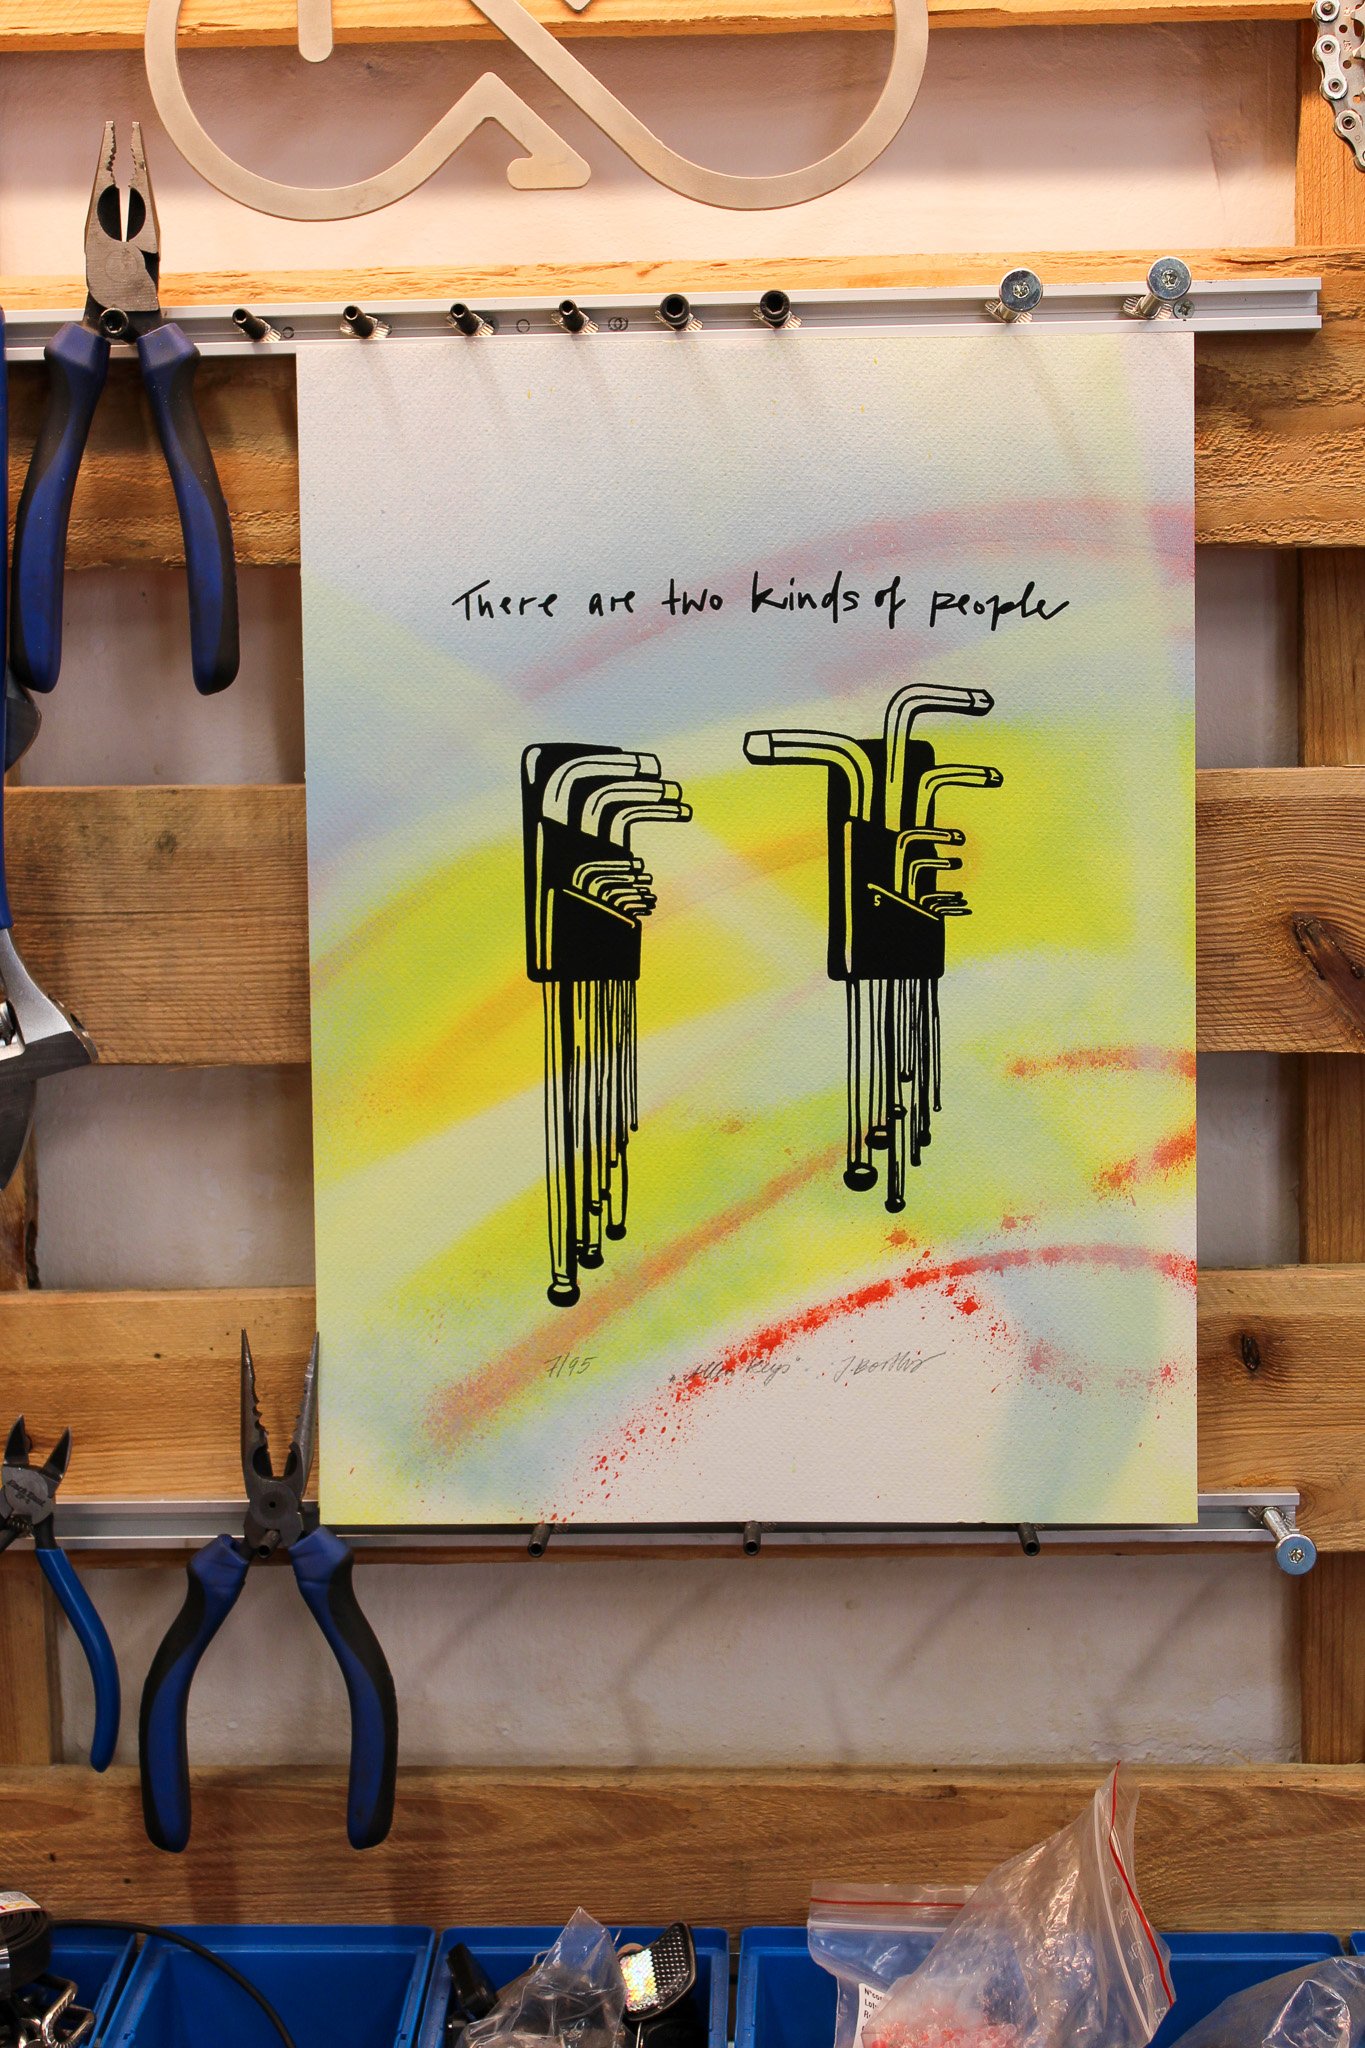 There are two kinds of people
5
7/95 "Allen Keys"